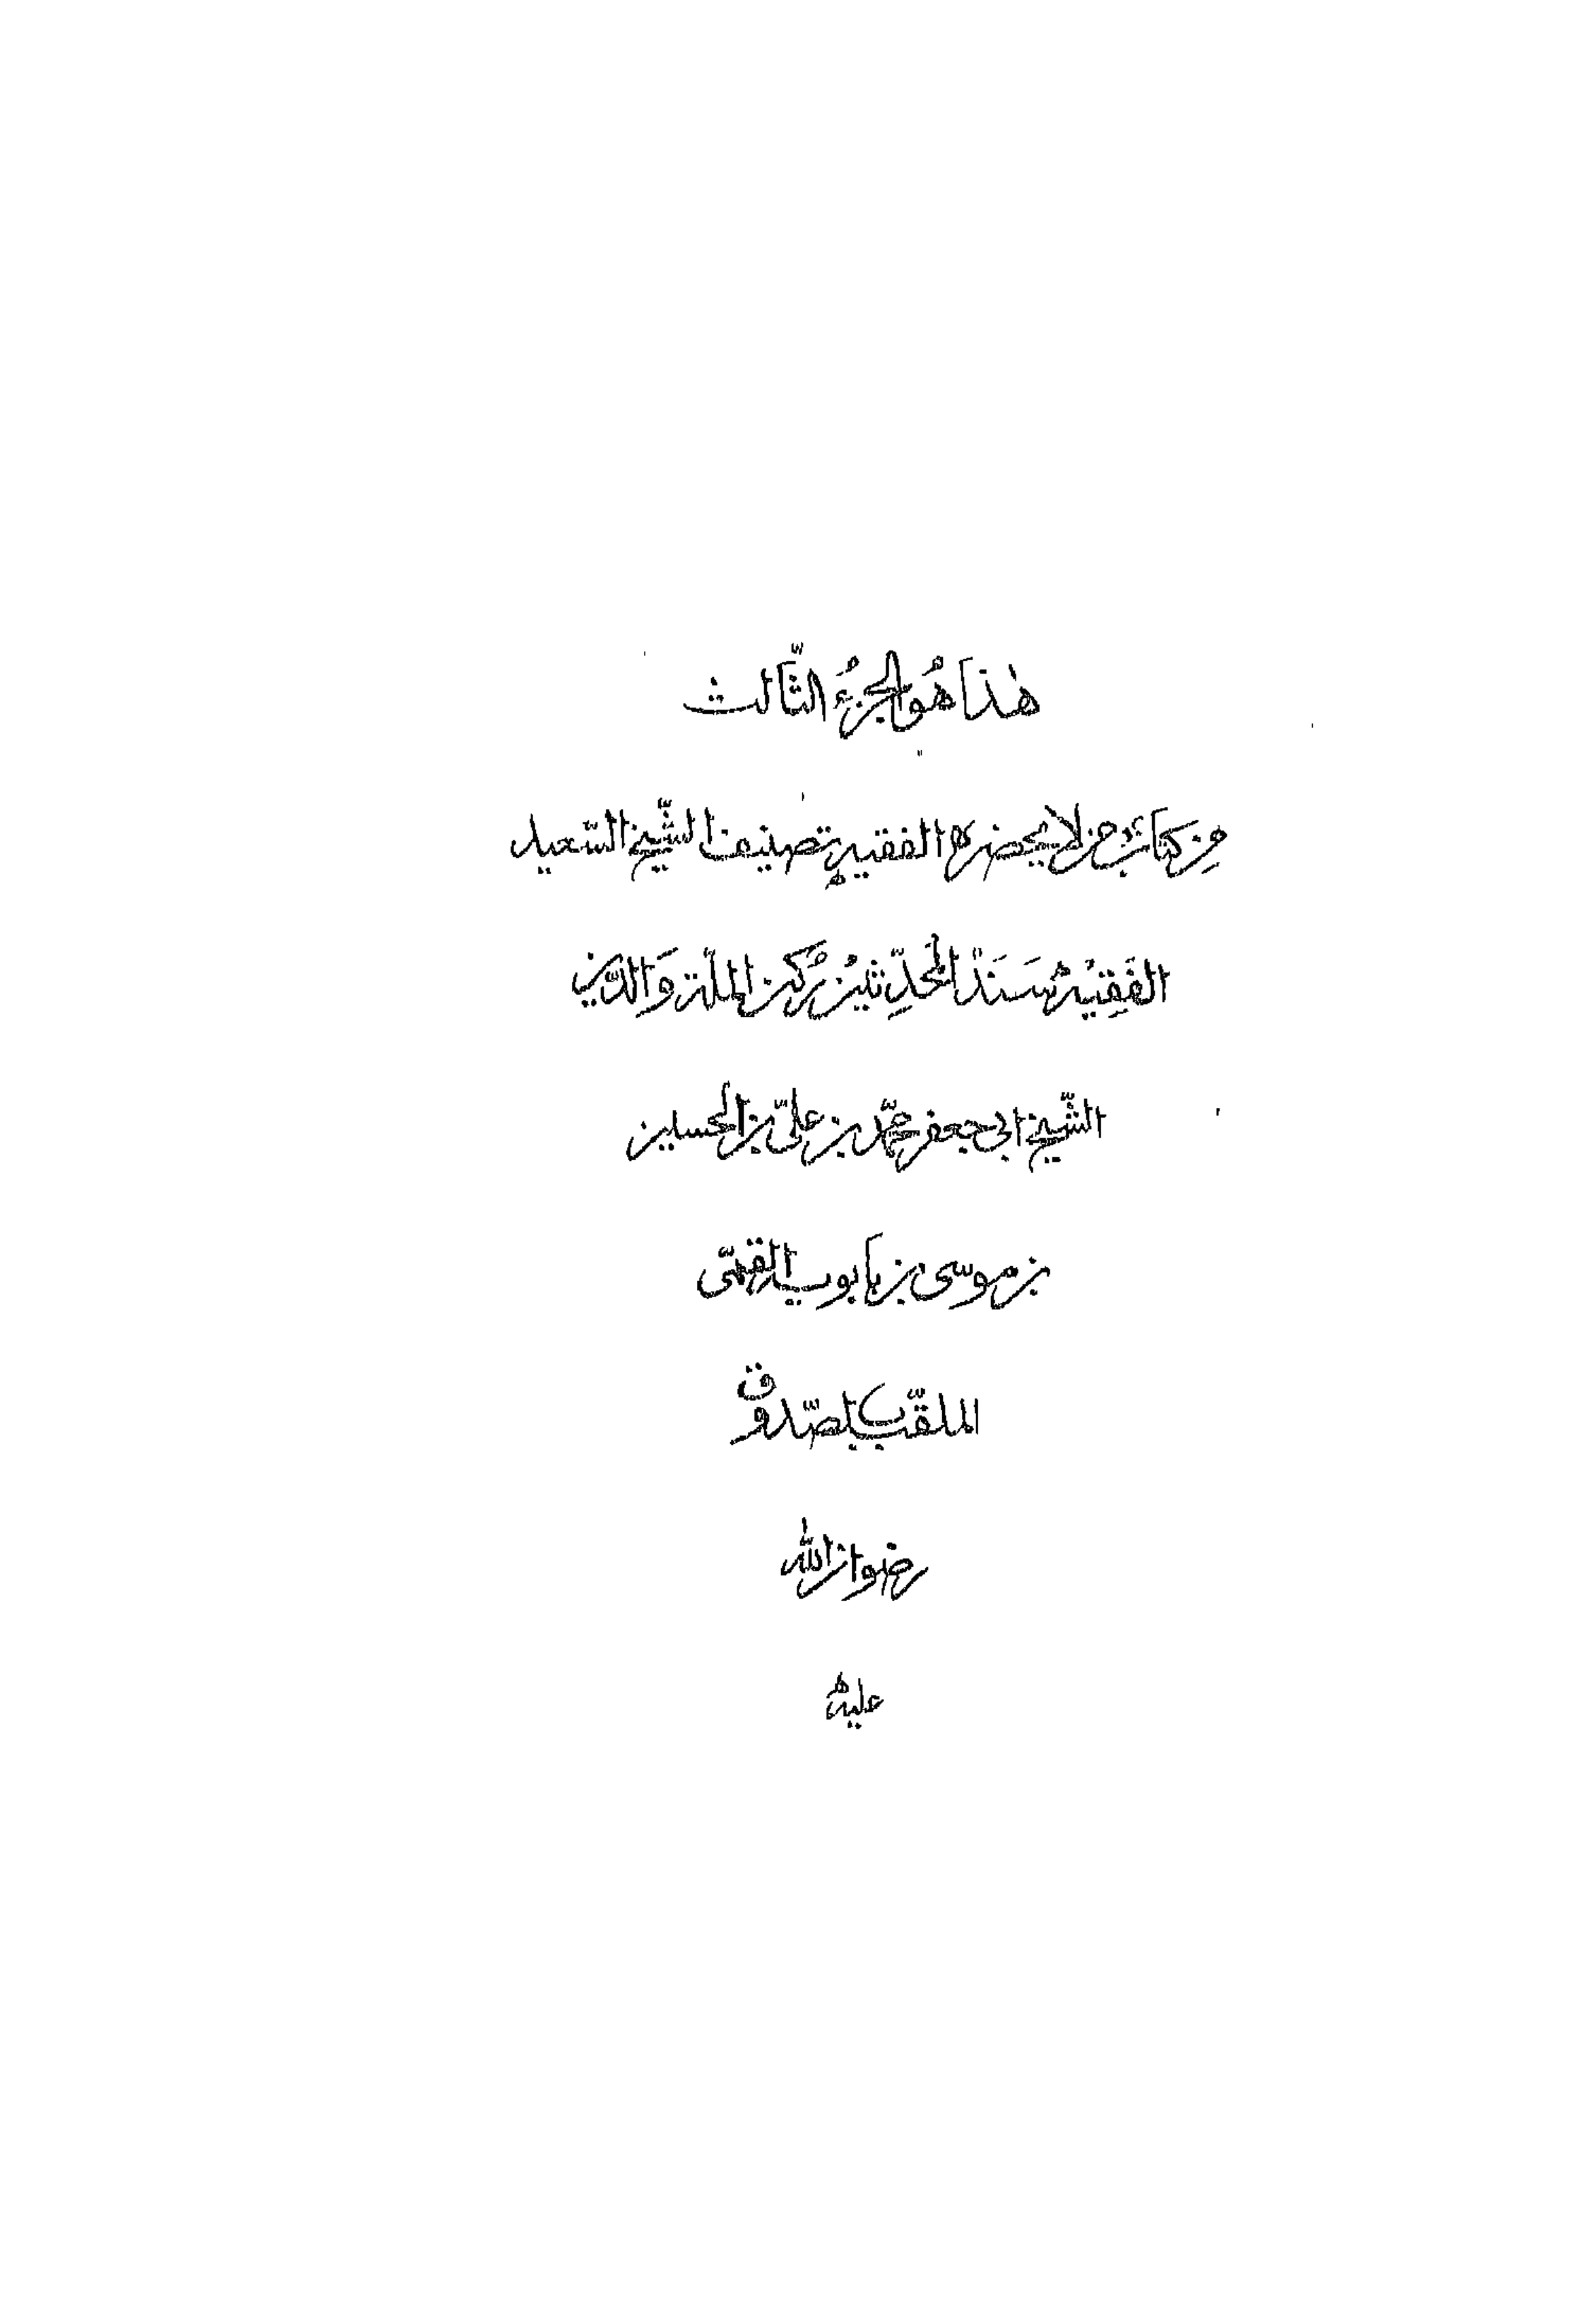 هٰذا هُو الجزءُ الثّالث
مِن كتاب من لا يحضره الفقيه تصنيف الشّيخ السّعيد
الفَقِيْهُ سَنَدُ المُحَدِّثيْنَ رُكن الملّة وَالدّين
الشّيخ ابي جعفر محمّد بن عليّ بن الحسين
بن موسى بن بابويه القمّى
الملقّب بالصّدوق
رضوان الله
عليه